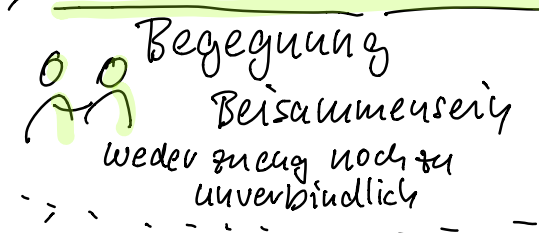 Begegnung
Beisammensein
weder zu eng noch zu
unverbindlich